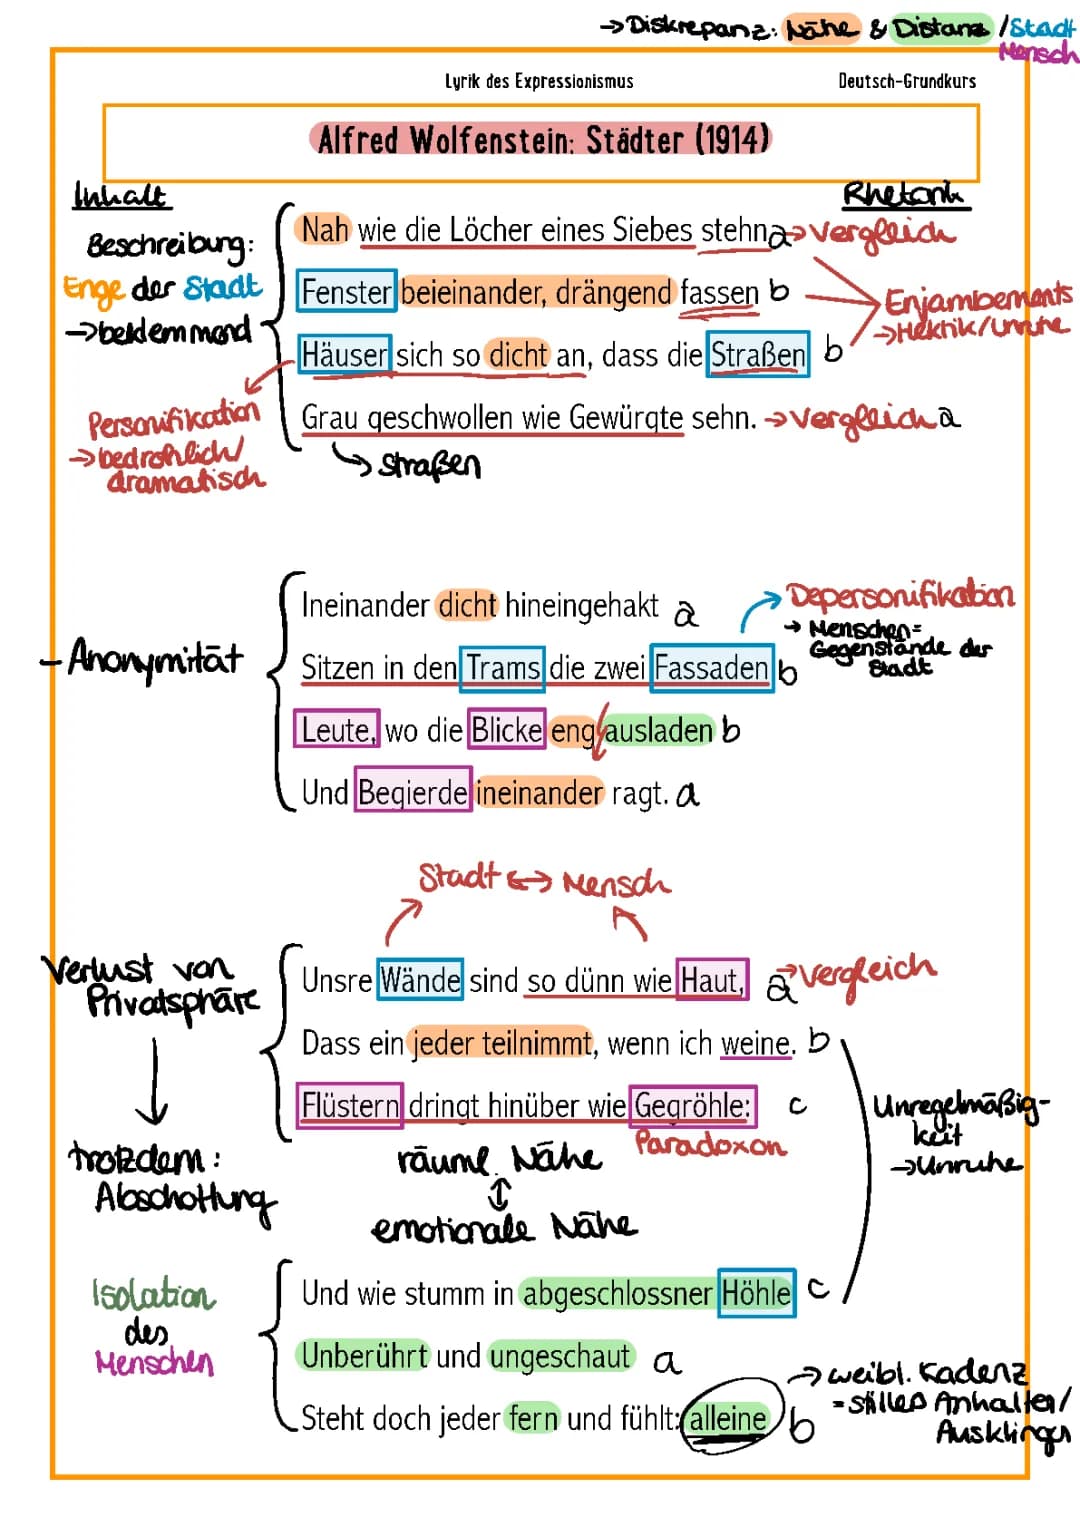 →Diskrepanz: Nähe & Distanz /Stadt
Mensch
Lyrik des Expressionismus
Deutsch-Grundkurs
Alfred Wolfenstein: Städter (1914)
Inhalt
Rhetorik
Beschreibung:
Enge der Stadt
→beklemmend
Nah wie die Löcher eines Siebes stehn a →Vergleich
Fenster beieinander, drängend fassen b
Enjambements
→Hektik/Unruhe
Häuser sich so dicht an, dass die Straßen b
Personifikation
→bedrohlich/
dramatisch
Grau geschwollen wie Gewürgte sehn. →Vergleich a
↳ Straßen
Ineinander dicht hineingehakt a
Depersonifikation
→ Menschen=
Gegenstände der
Stadt
- Anonymität
Sitzen in den Trams die zwei Fassaden b
Leute, wo die Blicke eng ausladen b
Und Begierde ineinander ragt. a
Stadt ↔ Mensch
Verlust von
Privatsphäre
Unsre Wände sind so dünn wie Haut, a →Vergleich
Dass ein jeder teilnimmt, wenn ich weine. b
Flüstern dringt hinüber wie Gegröhle: c
Paradoxon
Unregelmäßig-
keit
→Unruhe
trotzdem:
Abschottung
räuml. Nähe
↕
emotionale Nähe
Isolation
des
Menschen
Und wie stumm in abgeschlossner Höhle c
Unberührt und ungeschaut a
Steht doch jeder fern und fühlt: alleine b
→ weibl. Kadenz
= stilles Anhalten/
Ausklingen